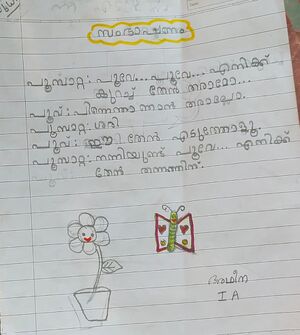 സംഭാഷണം
പൂമ്പാറ്റ: പൂവേ... പൂവേ... എനിക്ക്
കുറച്ച് തേൻ തരാമോ...
പൂവ്: പിന്നെന്താ ഞാൻ തരാല്ലോ.
പൂമ്പാറ്റ: ശരി
പൂവ്: ഈ തേൻ എടുത്തോളൂ
പൂമ്പാറ്റ: നന്ദിയുണ്ട് പൂവേ... എനിക്ക്
തേൻ തന്നതിന്.
I A